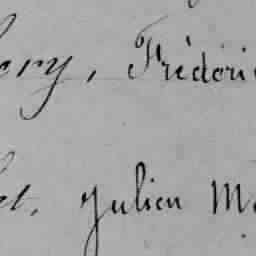 ery, Fréderi
et, Julien M